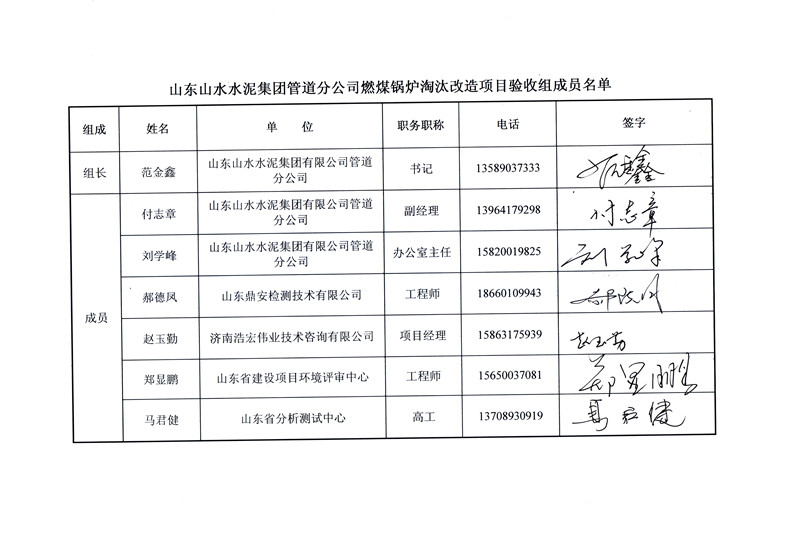 山东山水水泥集团管道分公司燃煤锅炉淘汰改造项目验收组成员名单
组成 姓名 单 位 职务职称 电话 签字
组长 范金鑫 山东山水水泥集团有限公司管道 书记 13589037333 范金鑫
分公司
成员
付志章 山东山水水泥集团有限公司管道 副经理 13964179298 付志章
分公司
刘学峰 山东山水水泥集团有限公司管道 办公室主任 15820019825 刘学峰
分公司
郝德凤 山东鼎安检测技术有限公司 工程师 18660109943 郝德凤
赵玉勤 济南浩宏伟业技术咨询有限公司 项目经理 15863175939 赵玉勤
郑显鹏 山东省建设项目环境评审中心 工程师 15650037081 郑显鹏
马君健 山东省分析测试中心 高工 13708930919 马君健